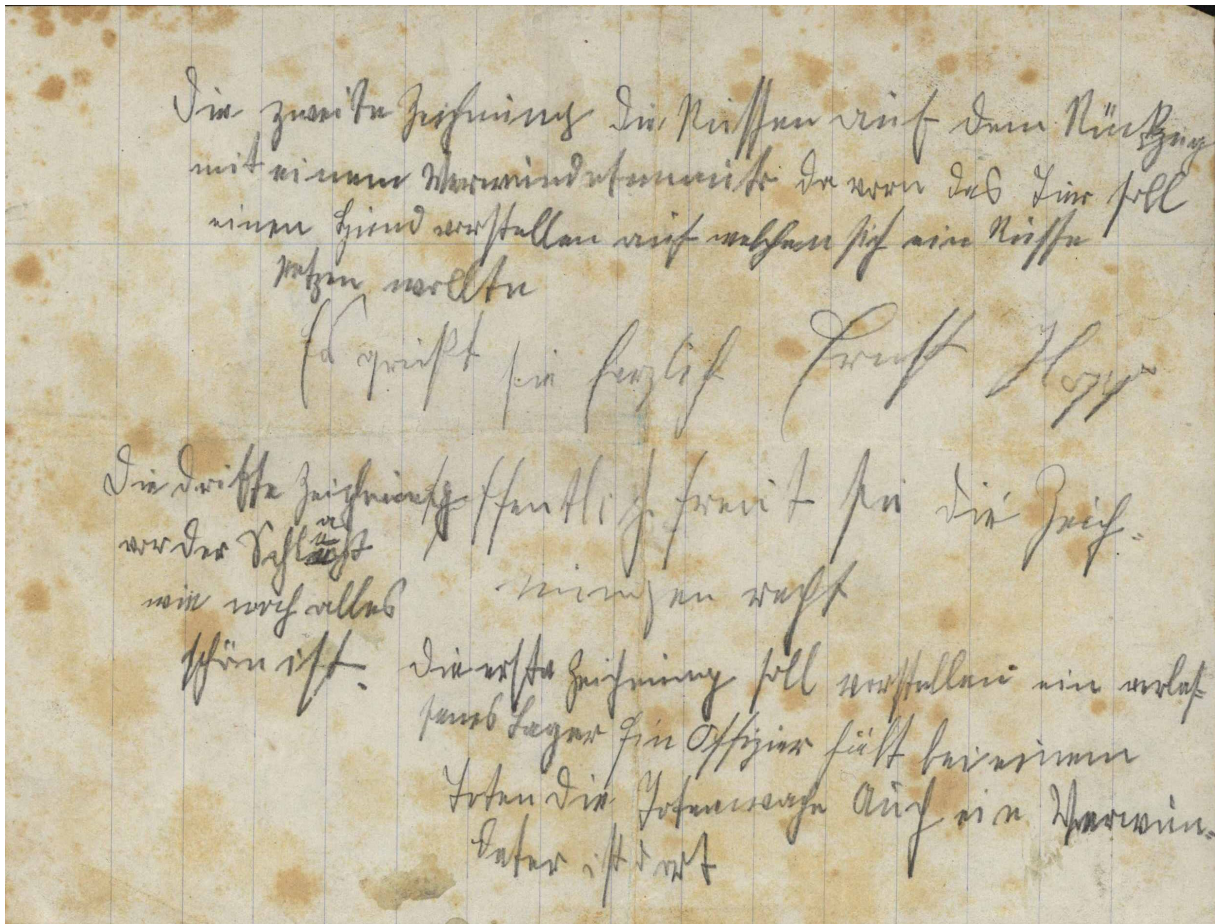 Die zweite Zeichnung die Russen auf dem Rückzug
mit einem Verwundeten da vorn das Tier soll
einen Hund vorstellen auf welchen sich ein Russe
setzen wollte
Es grüßt sie herzlich Ernst
Die dritte Zeichnung
vor der Schlacht
wie noch alles
schön ist.
öffentlich freut sie die Zeich-
nungen recht
Die erste Zeichnung soll vorstellen ein verlas
senes Lager Ein Offizier hält bei einem
Toten die Totenwache Auch ein Verwun-
deter ist dort